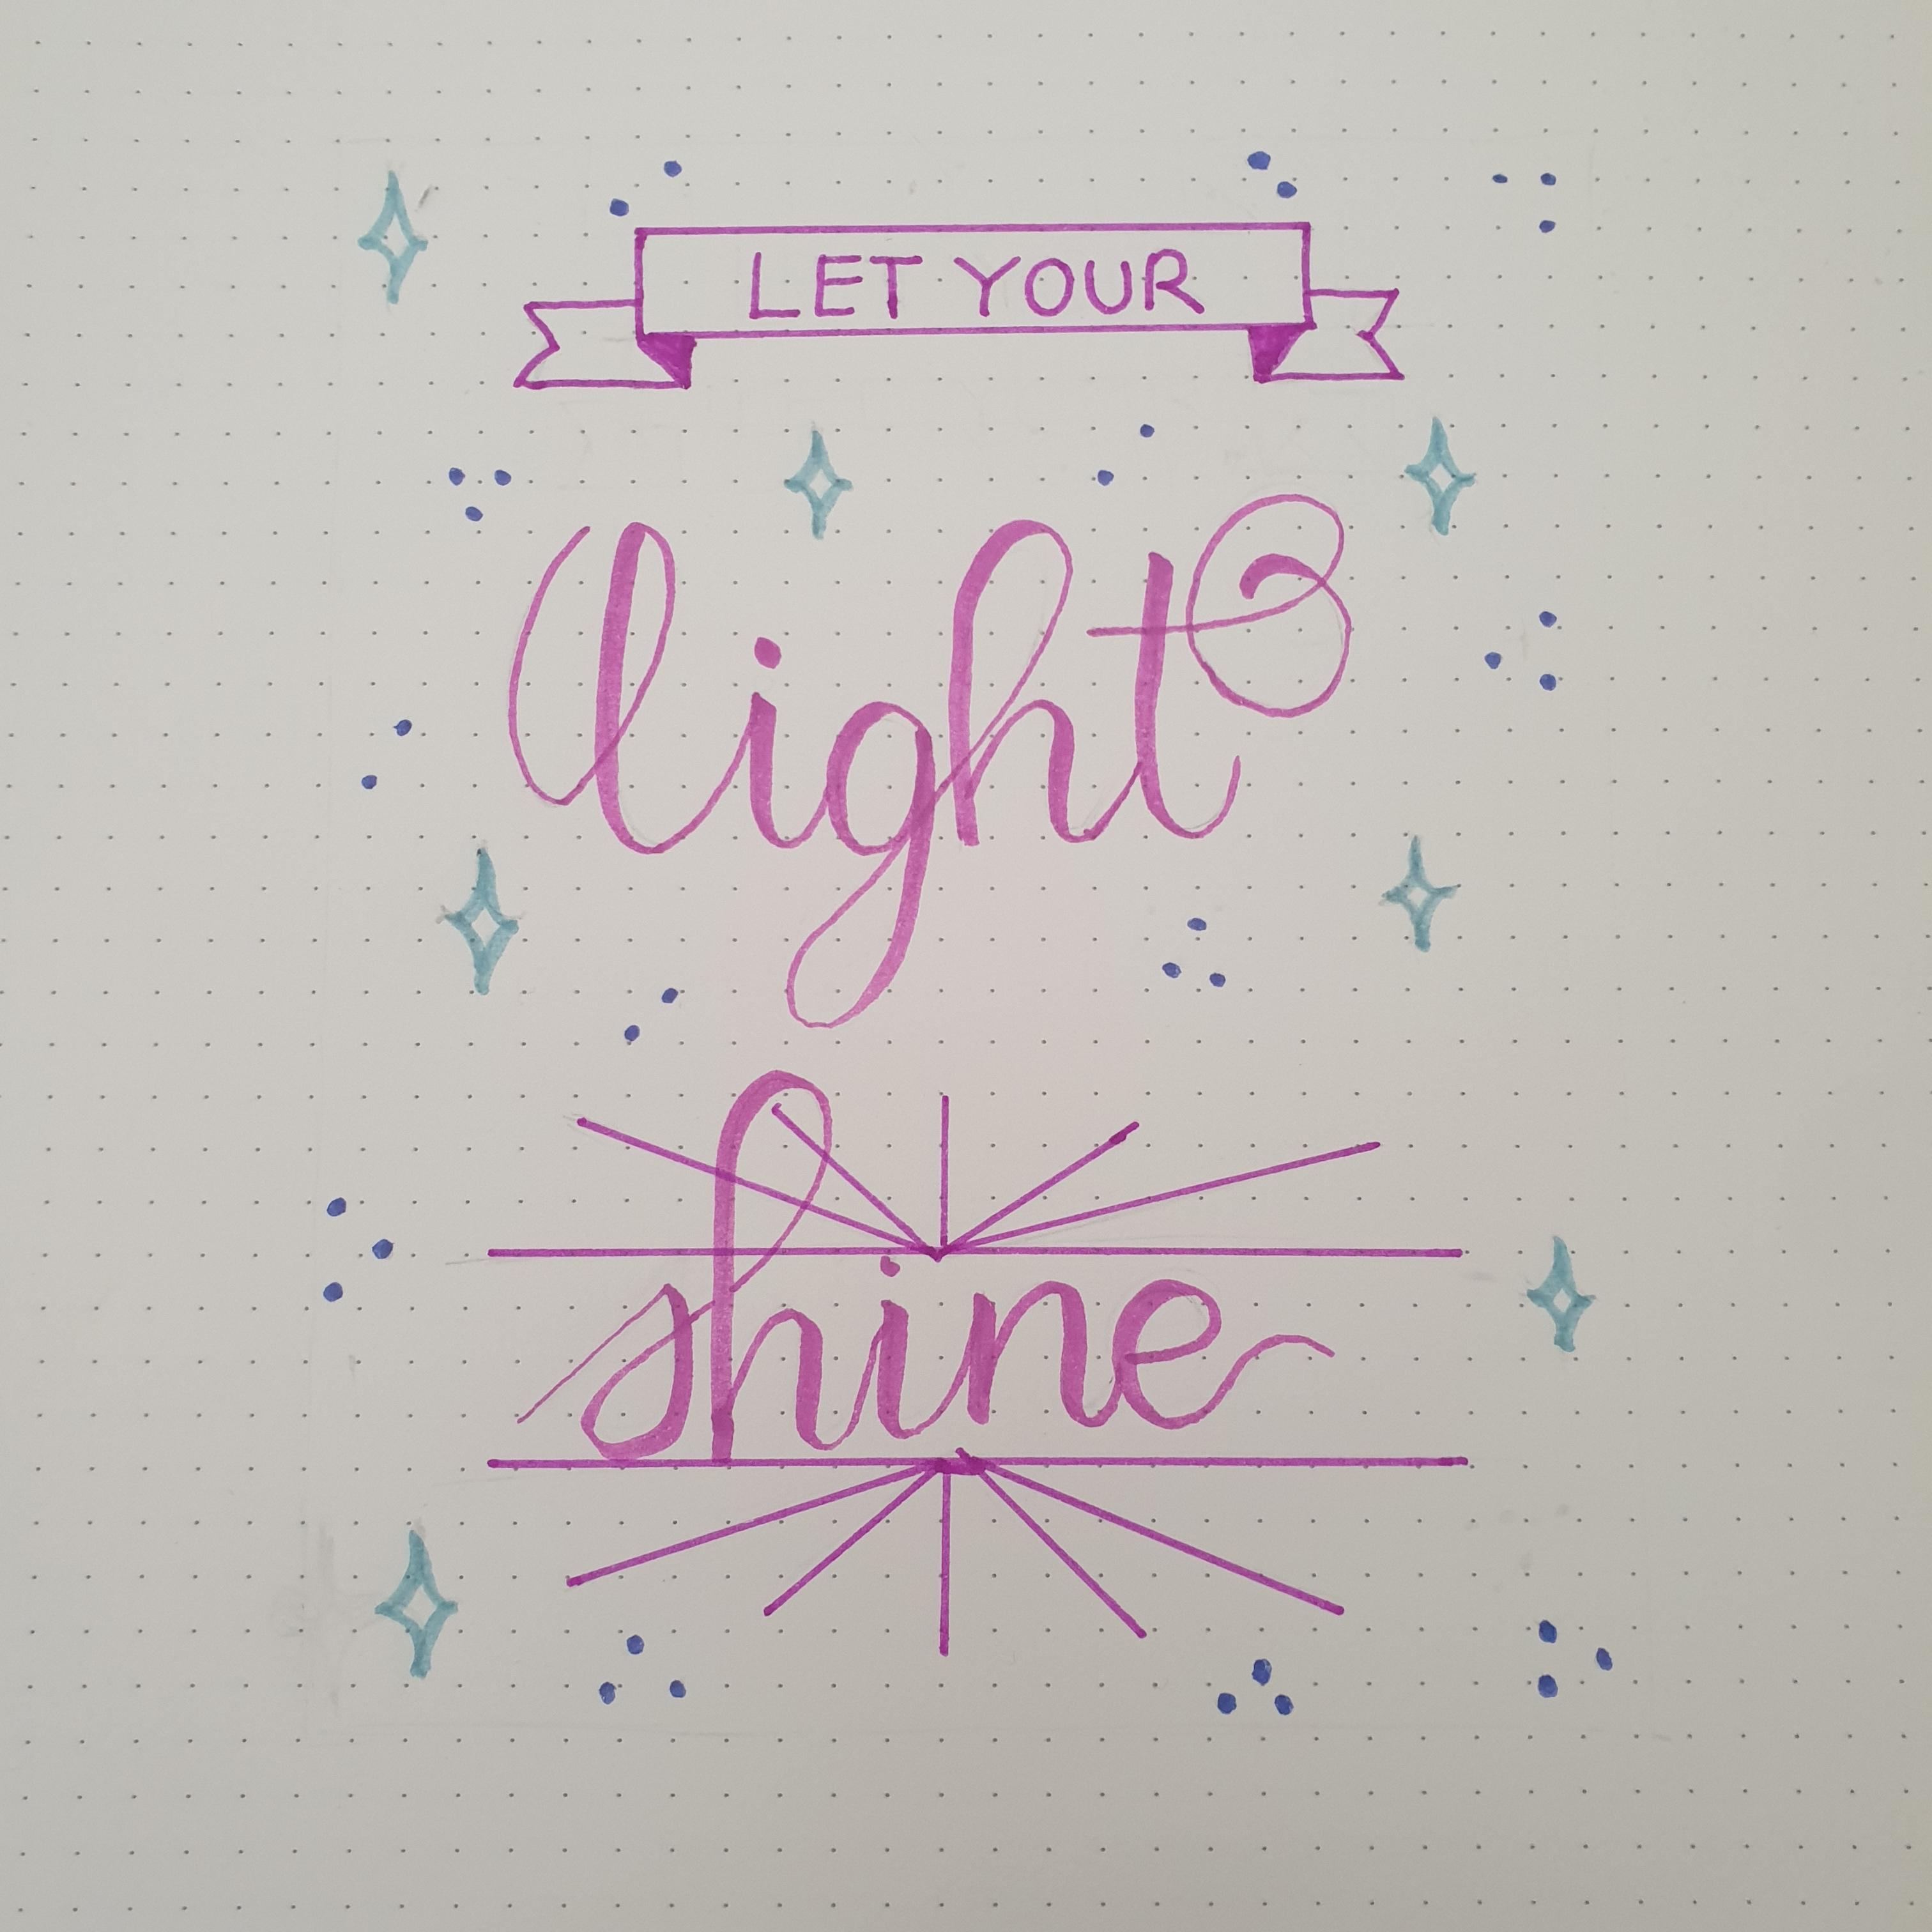 LET YOUR
light
shine